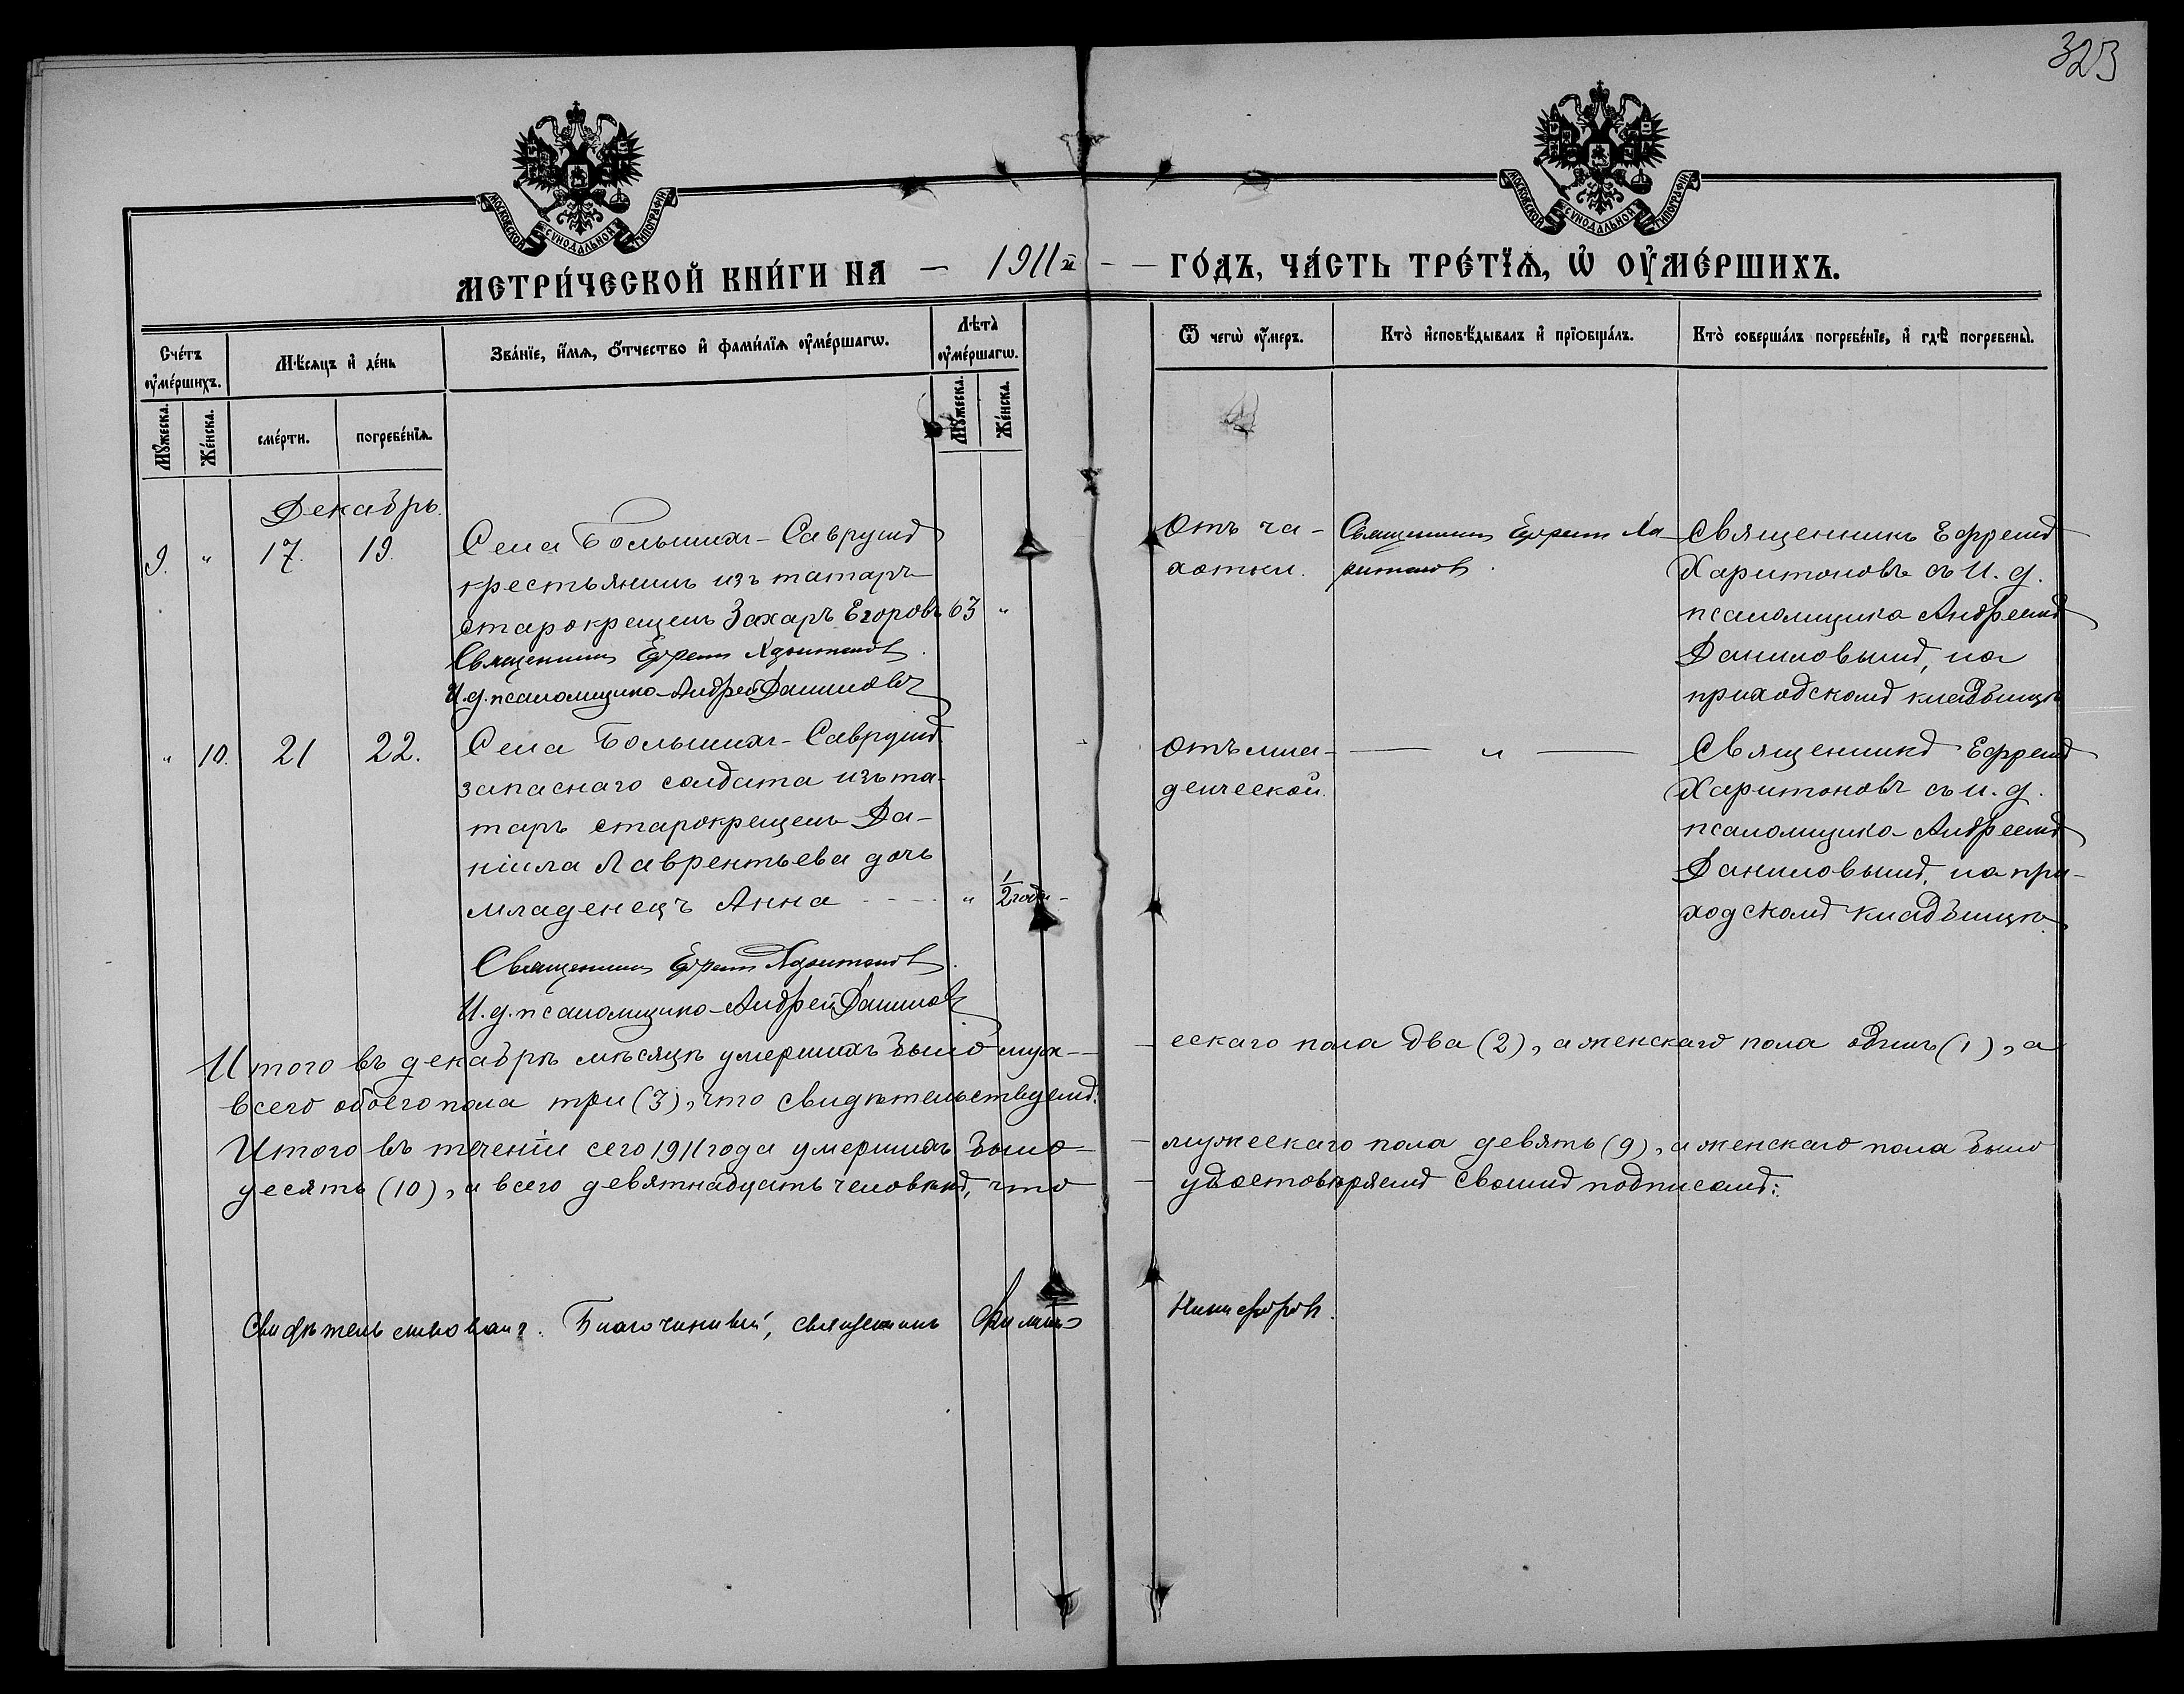 323
МОСКОВСКОЙ СѴНОДАЛЬНОЙ ТИПОГРАФІИ
МОСКОВСКОЙ СѴНОДАЛЬНОЙ ТИПОГРАФІИ
МЕТРИ́ЧЕСКОЙ КНИ́ГИ НА — 1911й — — ГО́ДЪ, ЧА́СТЬ ТРЕ́ТЇѦ, Ѡ ОУМЕ́РШИХЪ.
Сче́тъ оуме́ршихъ.
Мѣ́сяцъ и де́нь
Зва́нїе, и́мѧ, о́тчество и фами́лїѧ оуме́ршагѡ.
Лѣта̀ оуме́ршагѡ.
Ѿ чегѡ̀ оу́меръ.
Кто̀ исповѣ́дывалъ и прїобща́лъ.
Кто̀ соверша́лъ погребе́нїе, и гдѣ̀ погребены̀.
Мꙋ́жеска.
Же́нска.
сме́рти.
погребе́нїѧ.
Мꙋ́жеска.
Же́нска.
Декабрь.
9. " 17. 19.
Села Большихъ-Саврушъ
крестьянинъ изъ татаръ
старокрещенъ Захаръ Егоровъ 63 "
Священникъ Ефремъ Харитоновъ.
И.д. псаломщика Андрей Даниловъ
Отъ ча-
хотки.
Священникъ Ефремъ Ха
ритоновъ.
Священникъ Ефремъ
Харитоновъ съ И. д.
псаломщика Андреемъ
Даниловымъ, на
приходскомъ кладбищѣ
" 10. 21 22.
Села Большихъ-Саврушъ
запаснаго солдата изъ та-
таръ старокрещенъ Да-
ніила Лаврентьева дочь
младенецъ Анна - - - - " 1/2 года -
Священникъ Ефремъ Харитоновъ.
И.д. псаломщика Андрей Даниловъ
Отъ мла-
денческой.
— " —
Священникъ Ефремъ
Харитоновъ съ и. д.
псаломщика Андреемъ
Даниловымъ, на при-
ходскомъ кладбищѣ.
Итого въ декабрѣ мѣсяцѣ умершихъ было муж-
- ескаго пола два (2), а женскаго пола одинъ (1), а
всего обоего пола три (3), что свидѣтельствуемъ:
Итого въ теченіи сего 1911 года умершихъ было -
- мужескаго пола девять (9), а женскаго пола было
десять (10), а всего девятнадцать человѣкъ, что
- удостовѣряемъ своимъ подписомъ:
Свидѣтельствовалъ: Благочинный, священникъ Филиппъ
Никифоровъ.